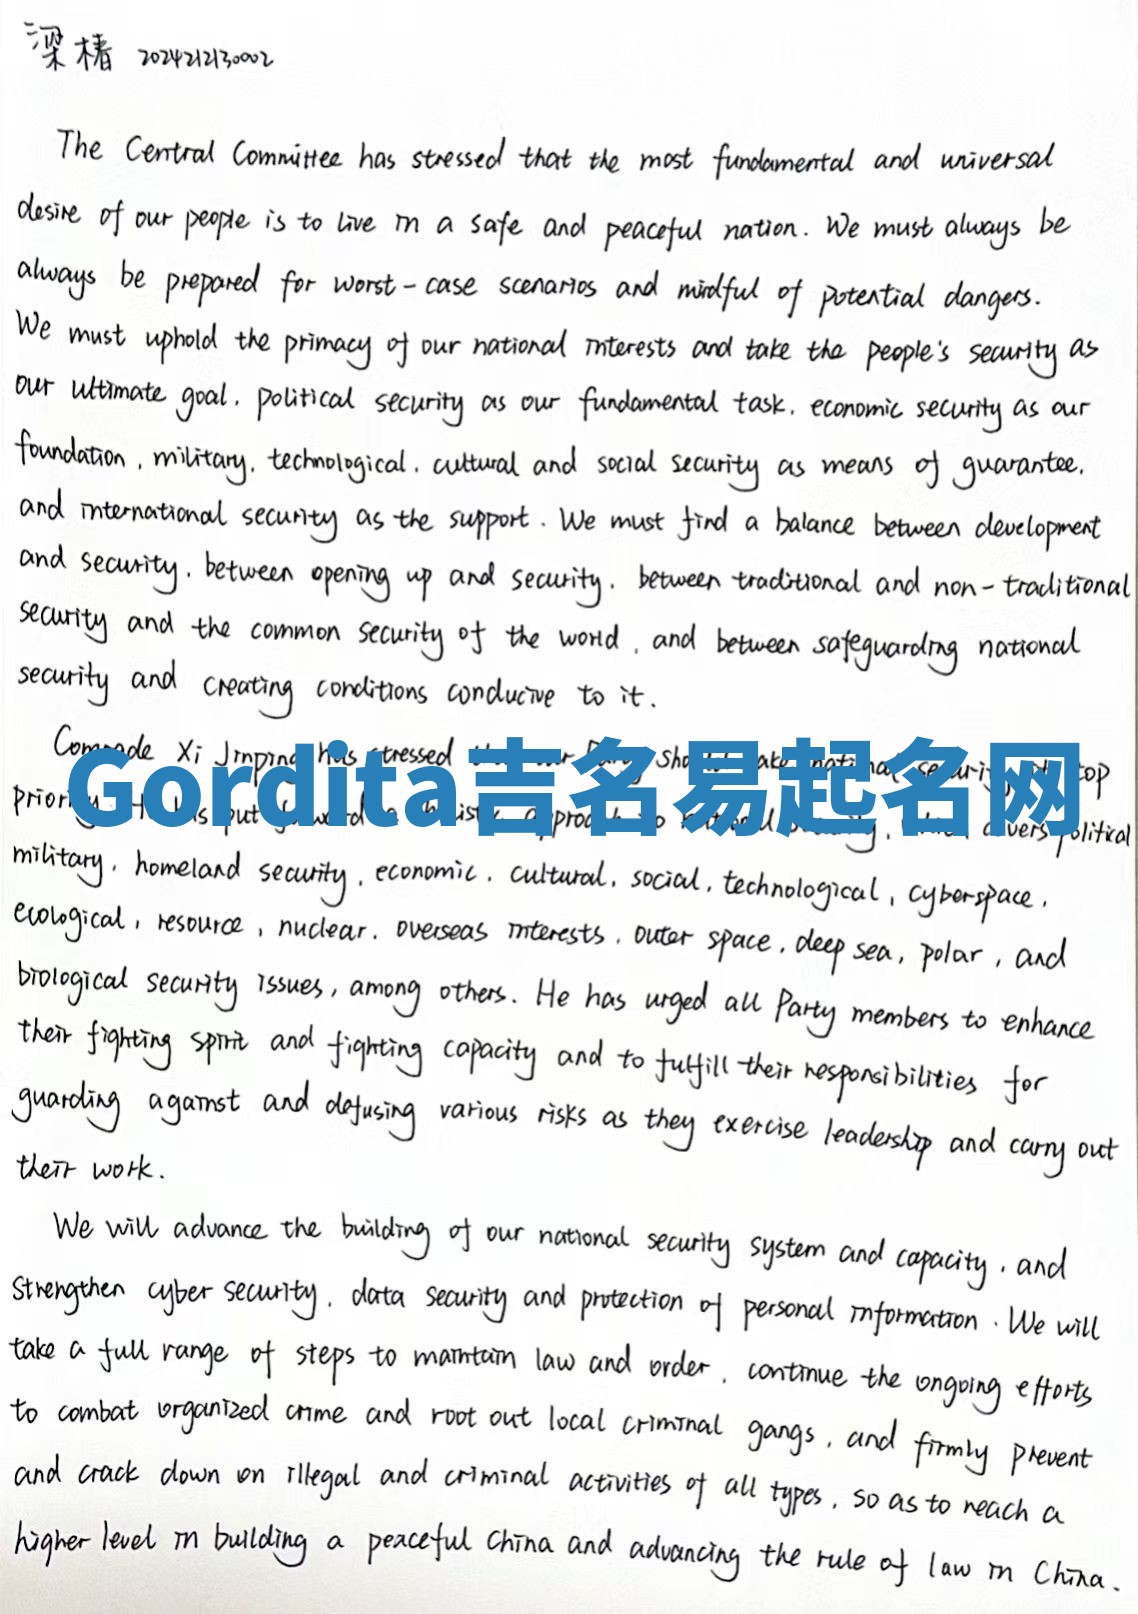 梁椿 2024212130002
The Central Committee has stressed that the most fundamental and universal
desire of our people is to live in a safe and peaceful nation. We must always be
always be prepared for worst-case scenarios and mindful of potential dangers.
We must uphold the primacy of our national interests and take the people's security as
our ultimate goal, political security as our fundamental task, economic security as our
foundation, military, technological, cultural and social security as means of guarantee,
and international security as the support. We must find a balance between development
and security, between opening up and security, between traditional and non-traditional
security and the common security of the world, and between safeguarding national
security and creating conditions conducive to it.
Comrade Xi Jinping has stressed top
Gordita吉名易起名网
put political
military, homeland security, economic, cultural, social, technological, cyberspace,
ecological, resource, nuclear, overseas interests, outer space, deep sea, polar, and
biological security issues, among others. He has urged all Party members to enhance
their fighting spirit and fighting capacity and to fulfill their responsibilities for
guarding against and defusing various risks as they exercise leadership and carry out
their work.
We will advance the building of our national security system and capacity, and
strengthen cyber security, data security and protection of personal information. We will
take a full range of steps to maintain law and order, continue the ongoing efforts
to combat organized crime and root out local criminal gangs, and firmly prevent
and crack down on illegal and criminal activities of all types, so as to reach a
higher level in building a peaceful China and advancing the rule of law in China.